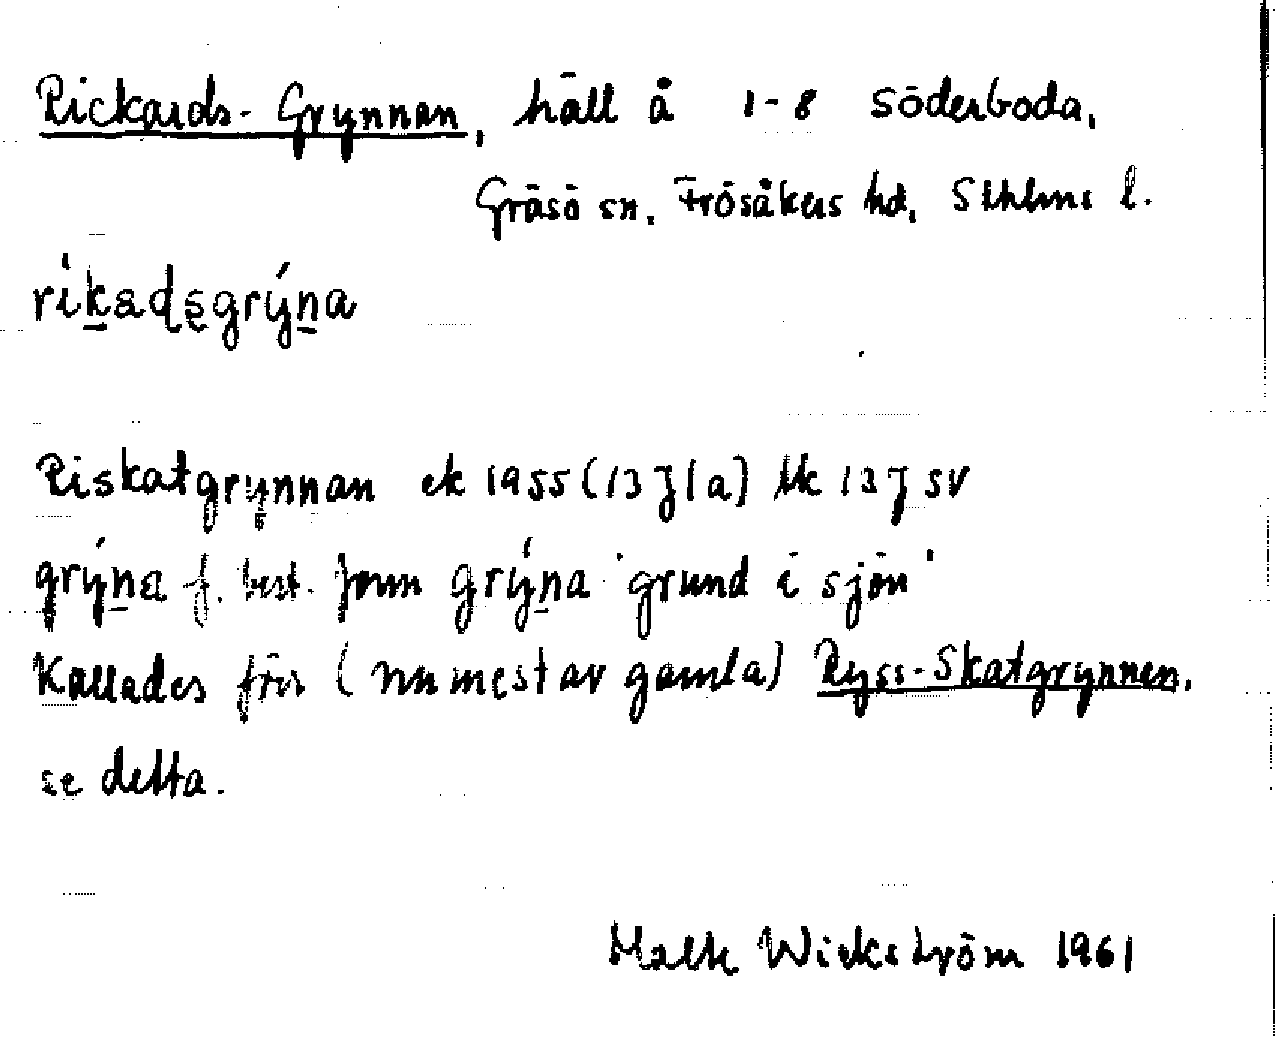 Rickards-Grynnan, häll å 1-8 Söderboda,
Gräsö sn, Frösåkers hd, Sthlms l.
ríkadsgrýna
Riskatgrynnan ek 1955 (13 J 1a) tk 13 J SV
grýna f. best. form grýna 'grund i sjön'
Kallades förr (nu mest av gamla) Ryss-Skatgrynnen,
se detta.
Malte Wickström 1961